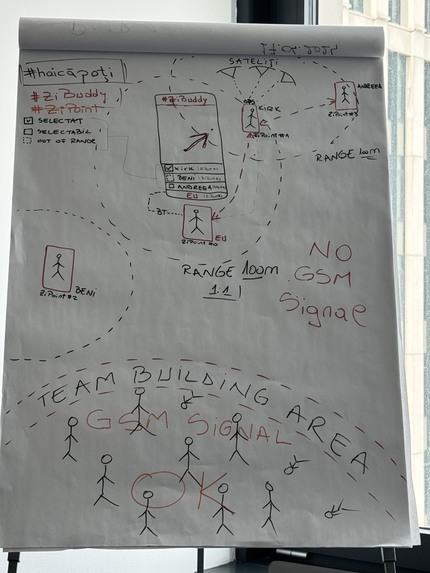 SATELIȚI
#haicăpoți
#ZiBuddy
#ZiPoint
SELECTAT
SELECTABIL
OUT OF RANGE
#ZiBuddy
KIRK
BENI
ANDREEA
EU
BT
ZiPoint #0
EU
KIRK
ZiPoint #1
ANDREEA
ZiPoint #3
RANGE 100m
RANGE 100m
1:1
BENI
ZiPoint #2
NO
GSM
Signal
TEAM BUILDING AREA
GSM SIGNAL
OK